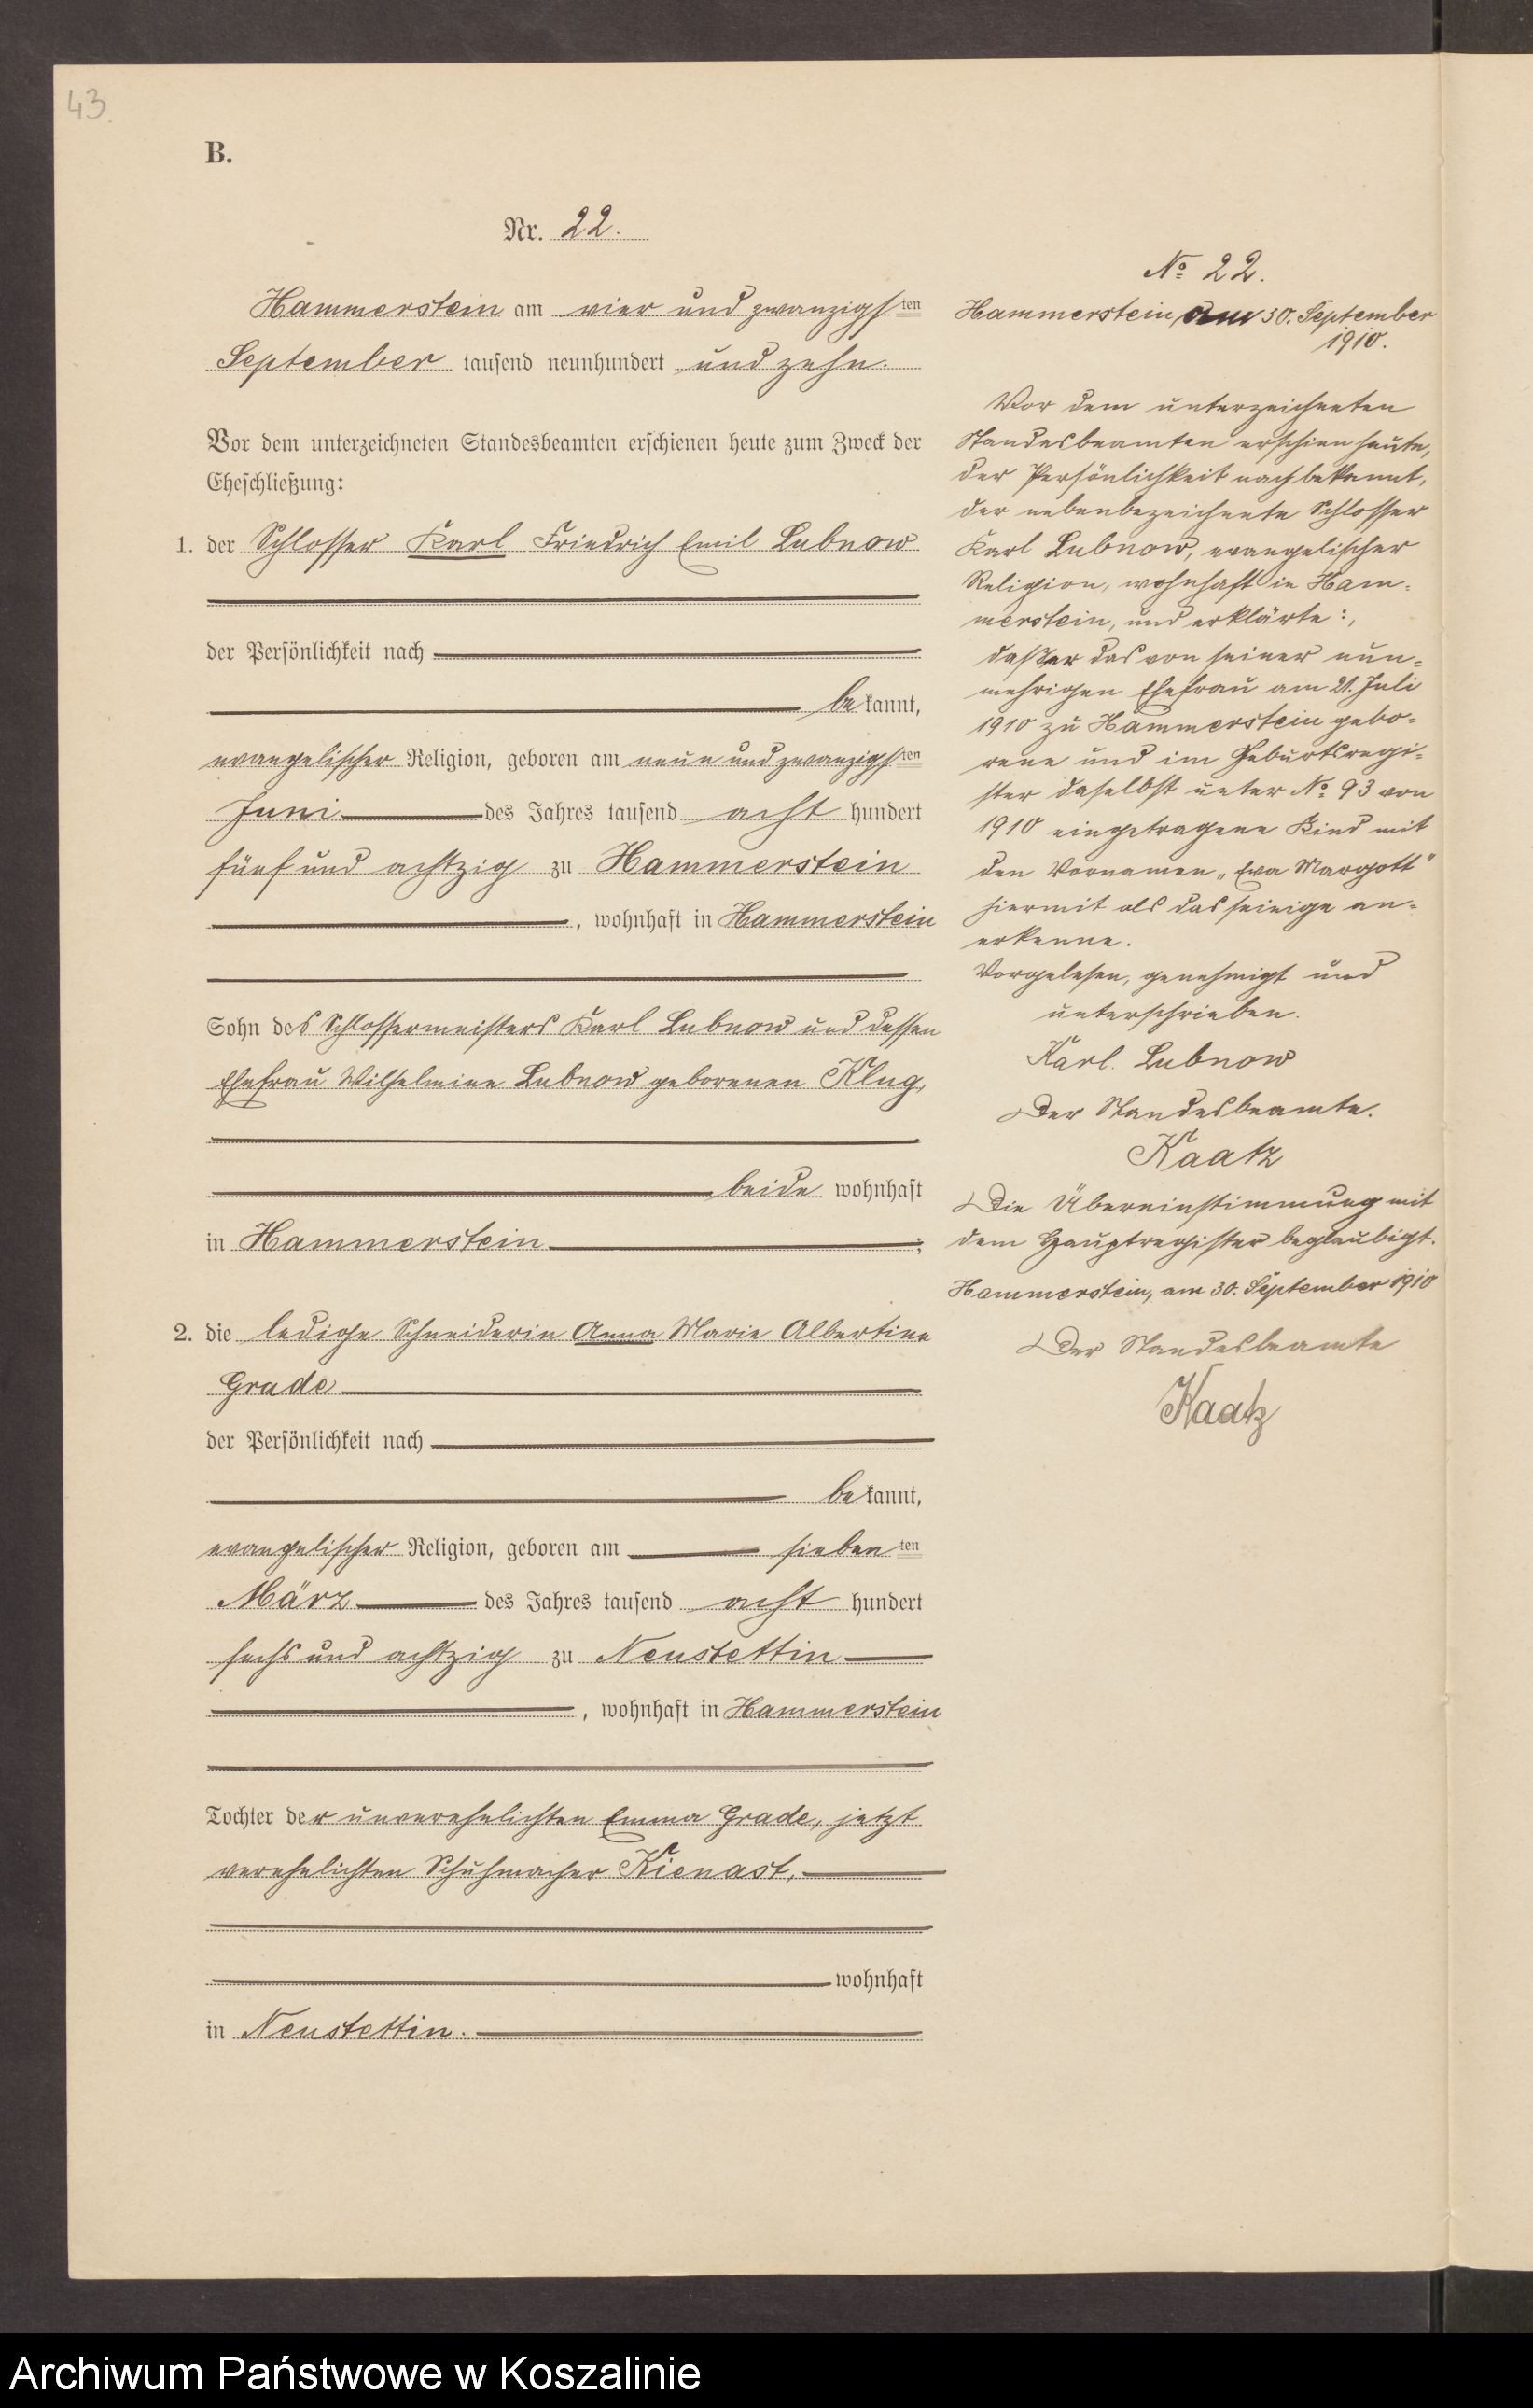 43.
B.
Nr. 22.
Hammerstein am vier und zwanzigsten
September tausend neunhundert und zehn.
Vor dem unterzeichneten Standesbeamten erschienen heute zum Zweck der
Eheschließung:
1. der Schlosser Karl Friedrich Emil Lubnow
der Persönlichkeit nach
bekannt,
evangelischer Religion, geboren am neun und zwanzigsten
Juni des Jahres tausend acht hundert
fünf und achtzig zu Hammerstein
, wohnhaft in Hammerstein
Sohn des Schlossermeisters Karl Lubnow und dessen
Ehefrau Wilhelmine Lubnow geborenen Klug,
beide wohnhaft
in Hammerstein ;
2. die ledige Schneiderin Anna Marie Albertine
Grade
der Persönlichkeit nach
bekannt,
evangelischer Religion, geboren am siebenten
März des Jahres tausend acht hundert
sechs und achtzig zu Neustettin
, wohnhaft in Hammerstein
Tochter der unverehelichten Emma Grade, jetzt
verehelichten Schuhmacher Kienast,
wohnhaft
in Neustettin.
No 22.
Hammerstein, am 30. September
1910.
Vor dem unterzeichneten
Standesbeamten erschien heute,
der Persönlichkeit nach bekannt,
der nebenbezeichnete Schlosser
Karl Lubnow, evangelischer
Religion, wohnhaft in Ham-
merstein, und erklärte:,
daß er das von seiner nun-
mehrigen Ehefrau am 21. Juli
1910 zu Hammerstein gebo-
rene und im Geburtsregi-
ster daselbst unter No 93 von
1910 eingetragene Kind mit
den Vornamen „Eva Margott"
hiermit als das seinige an-
erkenne.
Vorgelesen, genehmigt und
unterschrieben.
Karl. Lubnow
Der Standesbeamte.
Kaatz
Die Übereinstimmung mit
dem Hauptregister beglaubigt.
Hammerstein, am 30. September 1910
Der Standesbeamte
Kaatz
Archiwum Państwowe w Koszalinie